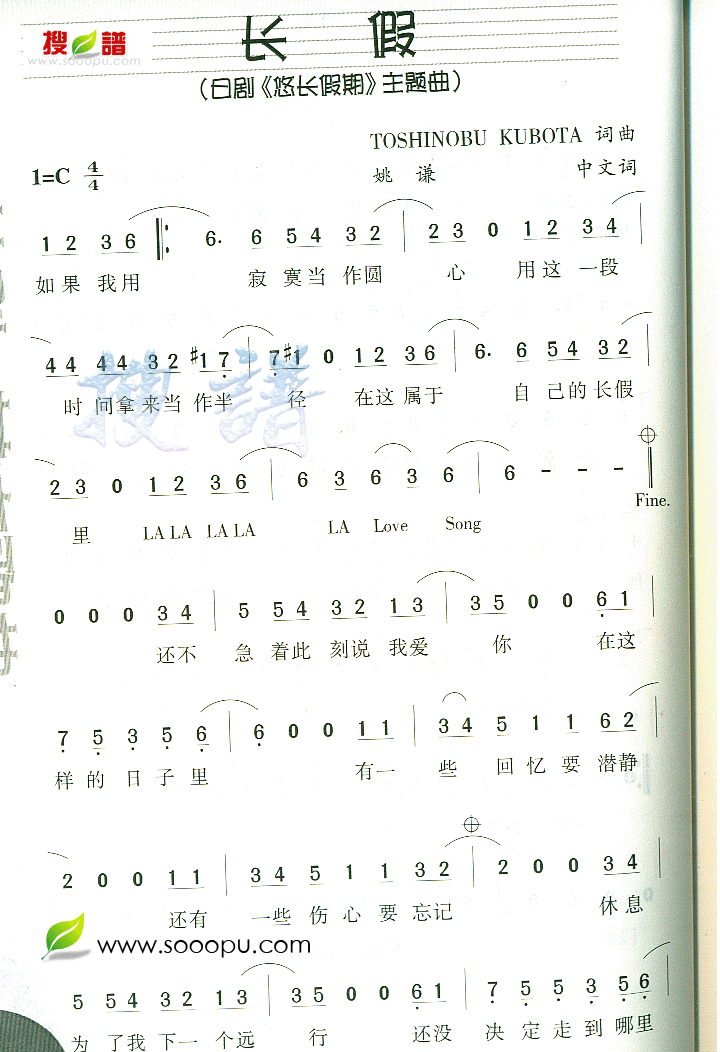 搜譜
www.sooopu.com
长 假
(日剧《悠长假期》主题曲)
TOSHINOBU KUBOTA 词曲
1=C 4/4 姚 谦 中文词
1 2 3 6 6. 6 5 4 3 2 2 3 0 1 2 3 4
如果 我用 寂 寞当 作圆 心 用这 一段
4 4 4 4 3 2 #1 7 7 #1 0 1 2 3 6 6. 6 5 4 3 2
时 间拿 来当 作半 径 在这 属于 自 己的 长假
搜譜
2 3 0 1 2 3 6 6 3 6 3 6 6 - - -
Fine.
里 LA LA LA LA LA Love Song
0 0 0 3 4 5 5 4 3 2 1 3 3 5 0 0 6 1
还不 急 着此 刻说 我爱 你 在这
7 5 3 5 6 6 0 0 1 1 3 4 5 1 1 6 2
样 的 日 子 里 有一 些 回 忆 要 潜静
2 0 0 1 1 3 4 5 1 1 3 2 2 0 0 3 4
还有 一些 伤 心 要 忘记 休息
www.sooopu.com
5 5 4 3 2 1 3 3 5 0 0 6 1 7 5 5 3 5 6
为 了我 下一 个远 行 还没 决 定 走 到 哪里